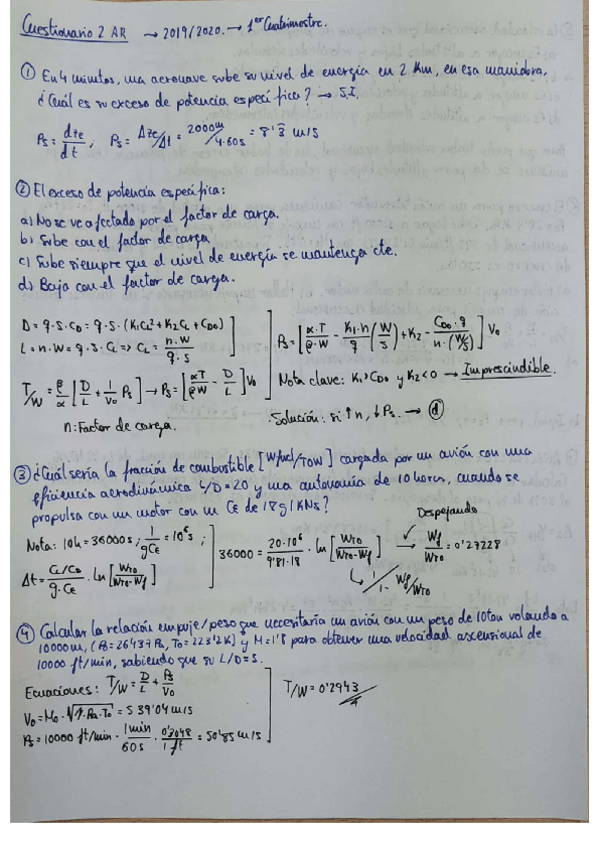 Cuestionario 2 AR → 2019/2020. → 1er Cuatrimestre.
① En 4 minutos, una aeronave sube su nivel de energía en 2 Km, en esa maniobra,
¿Cuál es su exceso de potencia específica? → S.I.
Ps = dze/dt ; Ps = Δze/Δt = 2000m/4·60s = 8'3̂ m/s
② El exceso de potencia especifica:
a) No se ve afectado por el factor de carga.
b) Sube con el factor de carga
c) Sube siempre que el nivel de energía se mantenga cte.
d) Baja con el factor de carga.
D = q·S·CD = q·S·(K1CL² + K2CL + CD0)
L = n·W = q·S·CL => CL = n·W/q·S
Ps = [α·T/β·W - K1·n/q (W/S) + K2 - CD0·q/n·(W/S)] V0
T/W = β/α [D/L + 1/V0 Ps] → Ps = [αT/βW - D/L] V0
Nota clave: K1 > CD0 y K2 < 0 → Imprescindible.
n: Factor de carga.
·Solución: si ↑n, ↓Ps. → ⓓ
③ ¿Cuál sería la fracción de combustible [Wfuel/TOW] cargada por un avión con una
eficiencia aerodinámica L/D = 20 y una autonomía de 10 horas, cuando se
propulsa con un motor con un CE de 18g/KNs?
Nota: 10h = 36000s; 1/gCE = 10⁶s;
Δt = CL/CD/g·CE · ln [WTO/WTO-Wf]
36000 = 20·10⁶/9'81·18 · ln [WTO/WTO-Wf]
1/1-Wf/WTO
Despejando
Wf/WTO = 0'27228
④ Calcular la relación empuje/peso que necesitaría un avión con un peso de 10ton volando a
10000m, (P0 = 26437Pa, T0 = 223'2K) y M = 1'8 para obtener una velocidad ascensional de
10000 ft/min, sabiendo que su L/D = 5.
Ecuaciones: T/W = D/L + Ps/V0
V0 = M0·√γ·Ra·T0 = 539'04 m/s
Ps = 10000 ft/min · 1min/60s · 0'3048/1ft = 50'85 m/s
T/W = 0'2943